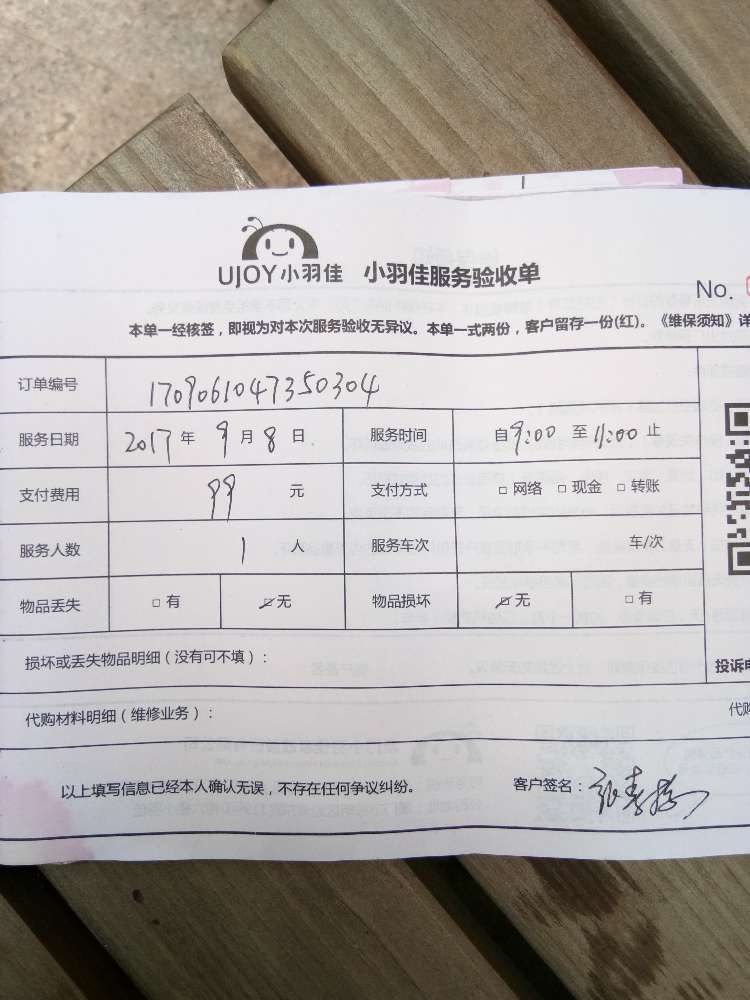 UJOY小羽佳 小羽佳服务验收单
No.
本单一经核签，即视为对本次服务验收无异议。本单一式两份，客户留存一份(红)。《维保须知》详
订单编号 1709061047350304
服务日期 2017 年 9 月 8 日 服务时间 自9:00 至 11:00 止
支付费用 99 元 支付方式 □ 网络 □ 现金 □ 转账
服务人数 1 服务车次 车/次
物品丢失 □ 有 ☑无 物品损坏 ☑无 □ 有
损坏或丢失物品明细（没有可不填）：
投诉电
代购材料明细（维修业务）：
代购
以上填写信息已经本人确认无误，不存在任何争议纠纷。 客户签名：